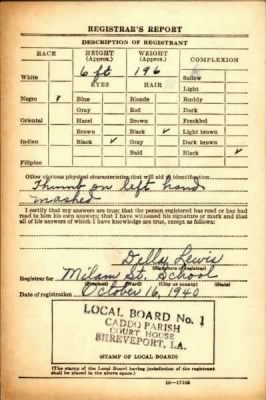 REGISTRAR'S REPORT
DESCRIPTION OF REGISTRANT
RACE HEIGHT (Approx.) WEIGHT (Approx.) COMPLEXION
6 ft 196
White EYES HAIR Sallow
Light
Negro ✓ Blue Blonde Ruddy
Gray Red Dark
Oriental Hazel Brown Freckled
Brown Black ✓ Light brown
Indian Black ✓ Gray Dark brown
Bald Black ✓
Filipino
Other obvious physical characteristics that will aid in identification
Thumb on left hand
mashed
I certify that my answers are true; that the person registered has read or has had
read to him his own answers; that I have witnessed his signature or mark and that
all of his answers of which I have knowledge are true, except as follows:
Lewis
(Signature of registrar)
Registrar for Milam St. School
(Precinct) (Ward) (City or county) (State)
Date of registration October 16, 1940
LOCAL BOARD No. 1
CADDO PARISH
COURT HOUSE
SHREVEPORT, LA.
(STAMP OF LOCAL BOARD)
(The stamp of the Local Board having jurisdiction of the registrant
shall be placed in the above space.)